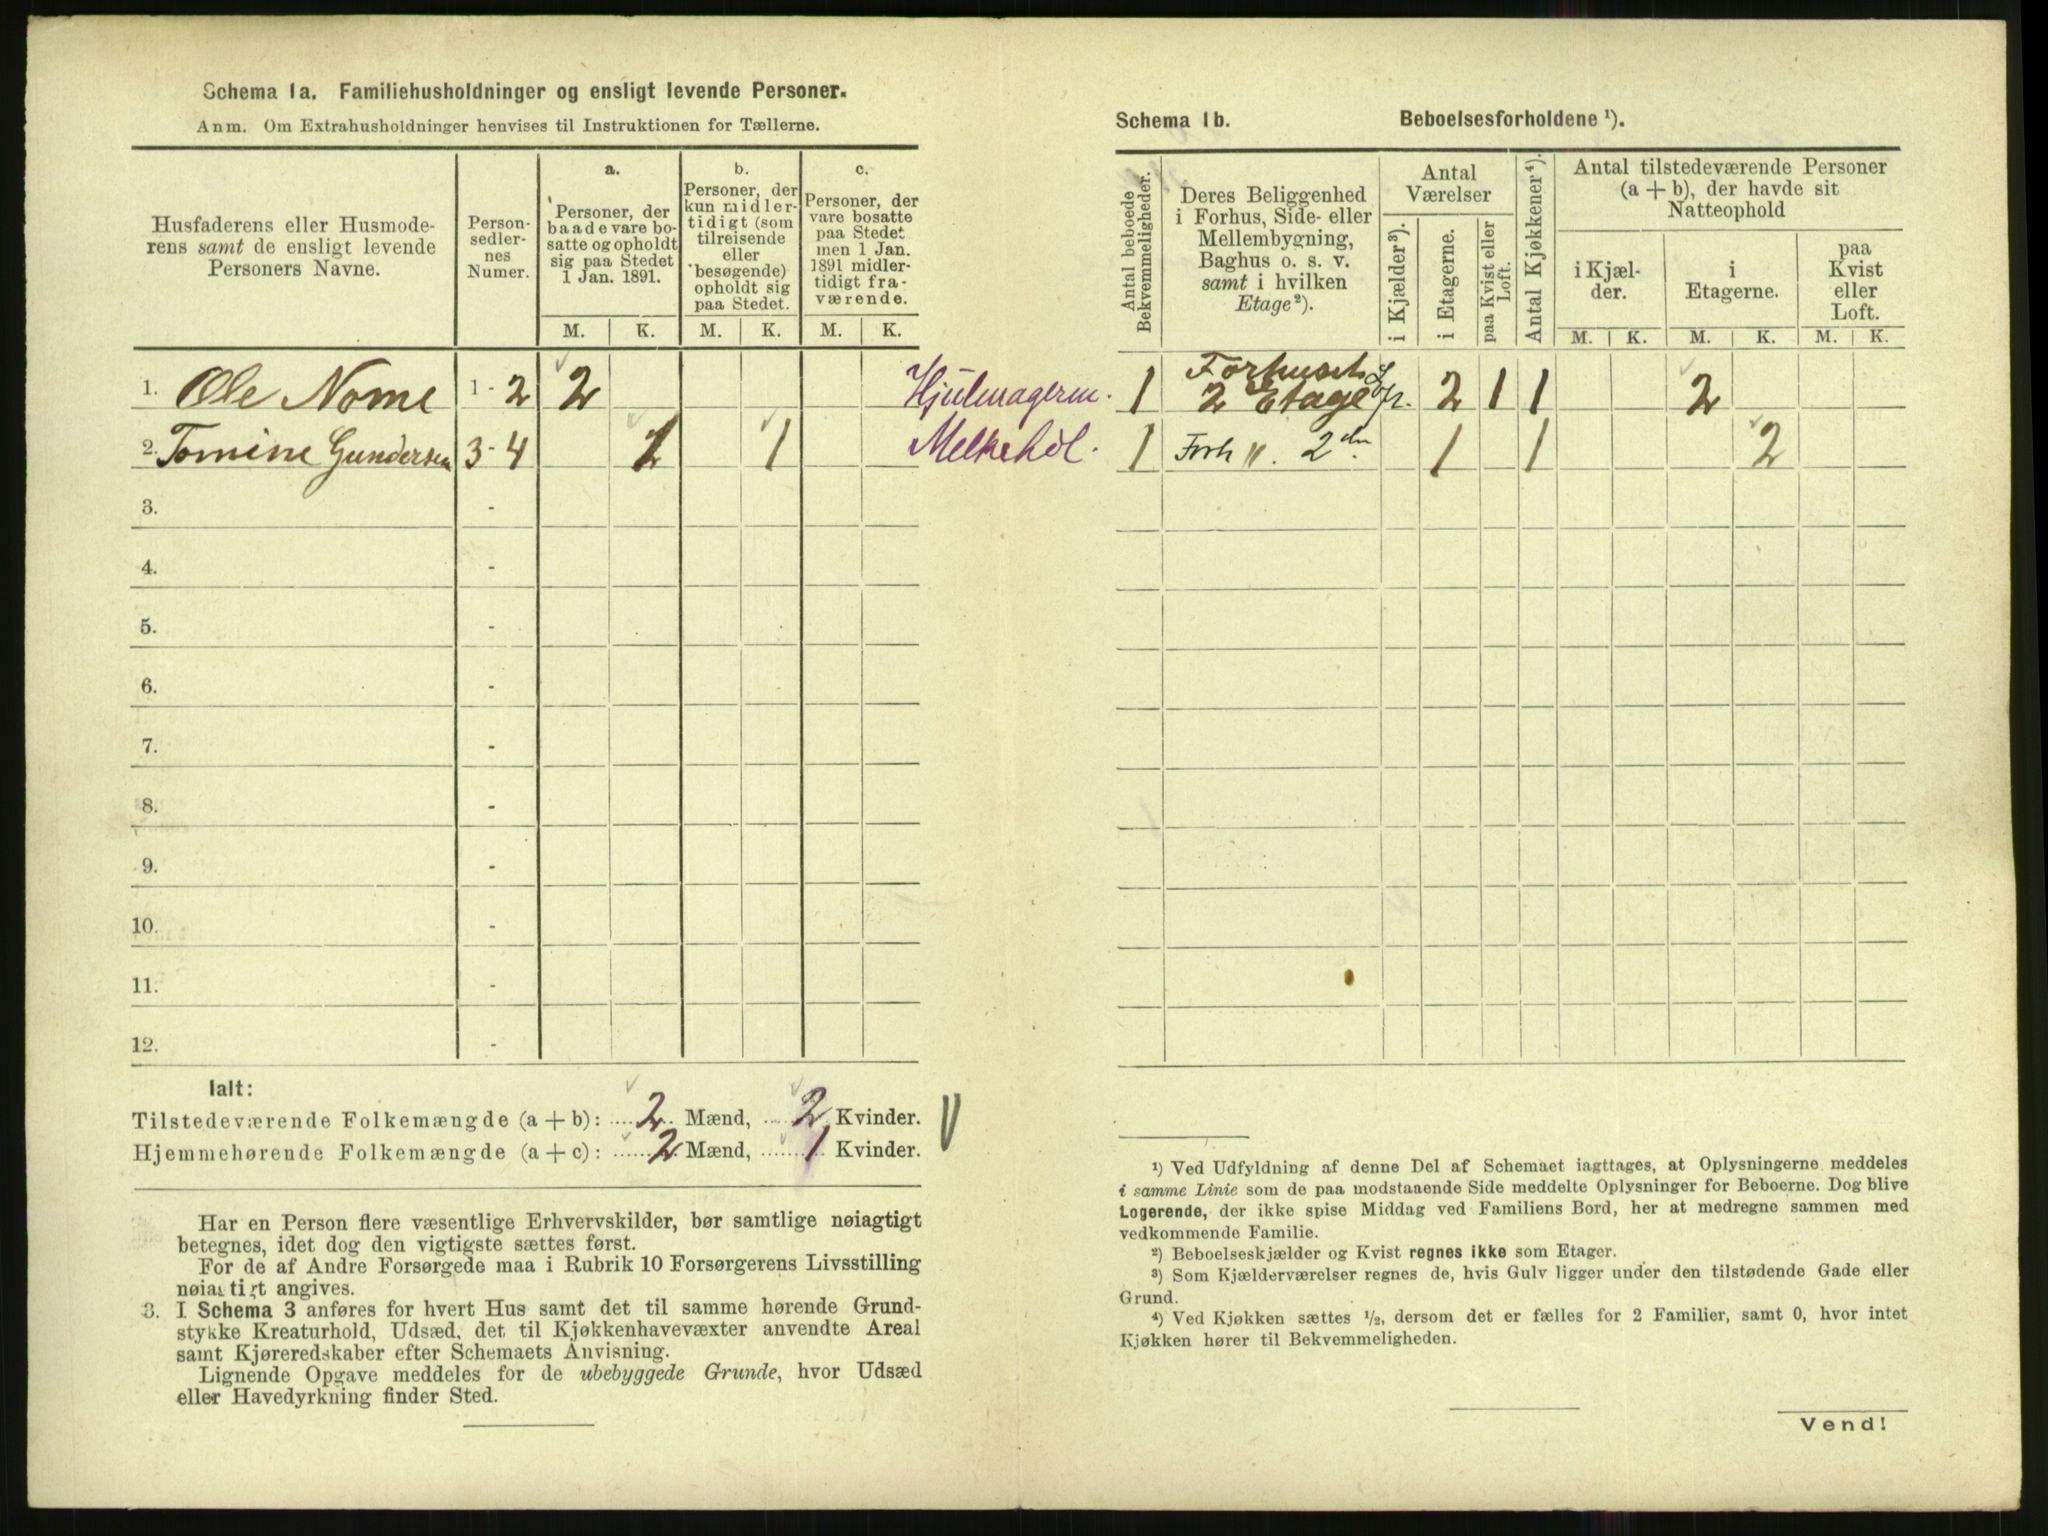 Schema 1a. Familiehusholdninger og ensligt levende Personer.
Anm. Om Extrahusholdninger henvises til Instruktionen for Tællerne.
Husfaderens eller Husmode-
rens samt de ensligt levende
Personers Navne.
Person-
sedler-
nes
Numer.
a.
Personer, der
baade vare bo-
satte og opholdt
sig paa Stedet
1 Jan. 1891.
b.
Personer, der
kun midler-
tidigt (som
tilreisende
eller
besøgende)
opholdt sig
paa Stedet.
c.
Personer, der
vare bosatte
paa Stedet
men 1 Jan.
1891 midler-
tidigt fra-
værende.
M. K. M. K. M. K.
1. Ole Nome 1 - 2 2 Hjulmagerm.
2. Tomine Gundersen 3 - 4 1 1 Melkehdl.
3. -
4. -
5. -
6. -
7. -
8. -
9. -
10. -
11. -
12. -
Ialt:
Tilstedeværende Folkemængde (a + b): 2 Mænd, 2 Kvinder.
Hjemmehørende Folkemængde (a + c): 2 Mænd, 1 Kvinder.
Har en Person flere væsentlige Erhvervskilder, bør samtlige nøiagtigt
betegnes, idet dog den vigtigste sættes først.
For de af Andre Forsørgede maa i Rubrik 10 Forsørgerens Livsstilling
nøiagtigt angives.
3. I Schema 3 anføres for hvert Hus samt det til samme hørende Grund-
stykke Kreaturhold, Udsæd, det til Kjøkkenhavevæxter anvendte Areal
samt Kjøreredskaber efter Schemaets Anvisning.
Lignende Opgave meddeles for de ubebyggede Grunde, hvor Udsæd
eller Havedyrkning finder Sted.
Schema 1b. Beboelsesforholdene ¹).
Antal beboede
Bekvemmeligheder.
Deres Beliggenhed
i Forhus, Side- eller
Mellembygning,
Baghus o. s. v.
samt i hvilken
Etage ²).
Antal
Værelser
i Kjælder ³).
i Etagerne.
paa Kvist eller
Loft.
Antal Kjøkkener ⁴).
Antal tilstedeværende Personer
(a + b), der havde sit
Natteophold
i Kjæl-
der.
i
Etagerne.
paa
Kvist
eller
Loft.
M. K. M. K. M. K.
1 Forhuset
2 Etage 2 1 1 2
1 Forh 2 1 1 2
¹) Ved Udfyldning af denne Del af Schemaet iagttages, at Oplysningerne meddeles
i samme Linie som de paa modstaaende Side meddelte Oplysninger for Beboerne. Dog blive
Logerende, der ikke spise Middag ved Familiens Bord, her at medregne sammen med
vedkommende Familie.
²) Beboelseskjælder og Kvist regnes ikke som Etager.
³) Som Kjælderværelser regnes de, hvis Gulv ligger under den tilstødende Gade eller
Grund.
⁴) Ved Kjøkken sættes ½, dersom det er fælles for 2 Familier, samt 0, hvor intet
Kjøkken hører til Bekvemmeligheden.
Vend!